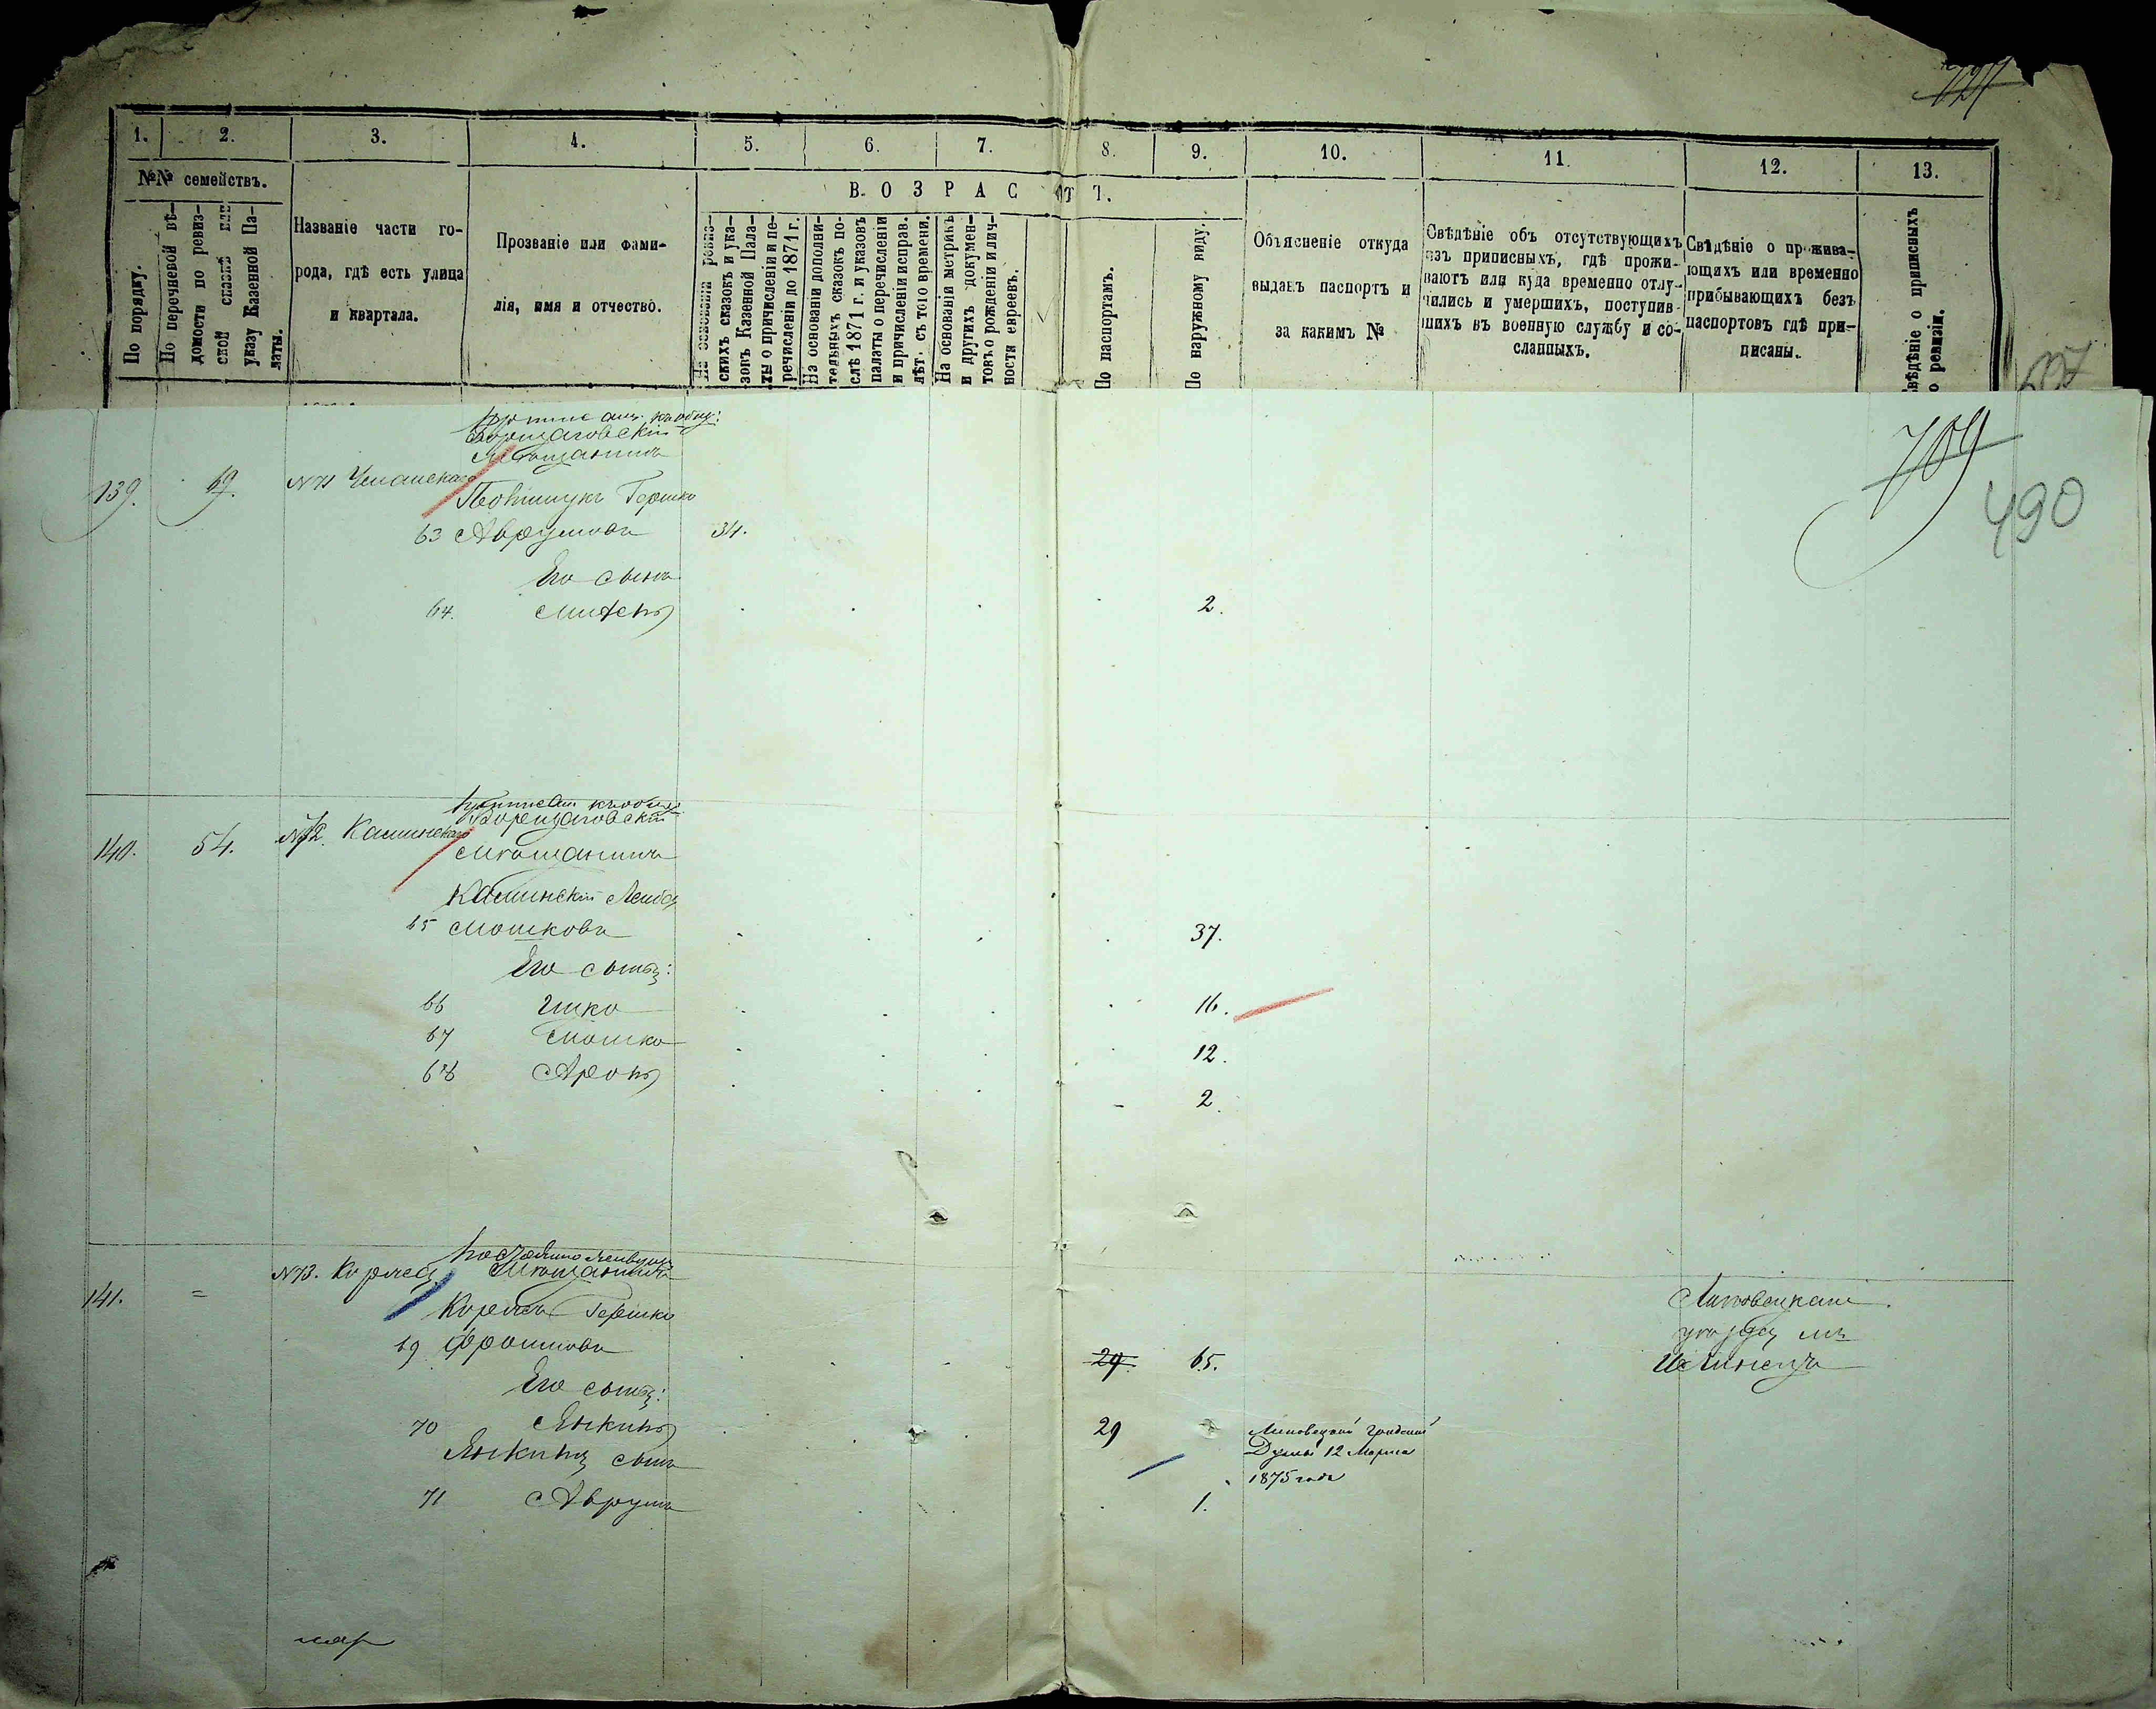 1. 2. 3. 4. 5. 6. 7. 8. 9. 10. 11. 12. 13.
№№ семействъ.
В О З Р А С Т Ъ.
По порядку.
По перечневой вѣ-
домости по ревиз-
ской сказкѣ или
указу Казенной Па-
латы.
Названіе части го-
рода, гдѣ есть улица
и квартала.
Прозваніе или фами-
лія, имя и отчество.
На основаніи ревиз-
скихъ сказокъ и ука-
зовъ Казенной Пала-
ты о причисленіи и пе-
речисленіи до 1871 г.
На основаніи дополни-
тельныхъ сказокъ по-
слѣ 1871 г. и указовъ
палаты о перечисленіи
и причисленіи исправ.
лѣт. съ того времени.
На основаніи метрикъ
и другихъ докумен-
товъ о рожденіи и лич-
ности евреевъ.
По паспортамъ.
По наружному виду.
Объясненіе откуда
выданъ паспортъ и
за какимъ №
Свѣдѣніе объ отсутствующихъ
изъ приписныхъ, гдѣ прожи-
ваютъ или куда временно отлу-
чились и умершихъ, поступив-
шихъ въ военную службу и со-
сланныхъ.
Свѣдѣніе о прожива-
ющихъ или временно
прибывающихъ безъ
паспортовъ гдѣ при-
писаны.
Свѣдѣніе о приписныхъ
о ревизіи.
709
490
Борщаговскій
Мѣщанинъ
139. 19. №71
Гершко
63 Аврумовъ 34.
Его сынъ
64. 2.
Борщаговскій
140. 54. №72. Каминскаго
Мѣщанинъ
Каминскій Лейба
65 Мошковъ 37.
Его сыны:
66 Ицко 16.
67 Мошко 12.
68 Аронъ 2.
№73.
Мѣщанинъ
141. = Гершко
69 Фроимовъ 29. 65.
Липовецкаго
уѣзда м.
Ильинецъ
Его сыны:
70 Янкинъ 29
Липовецкой Градской
Думы 12 Марта
1875 года
Янкина сынъ
71 Аврумъ 1.